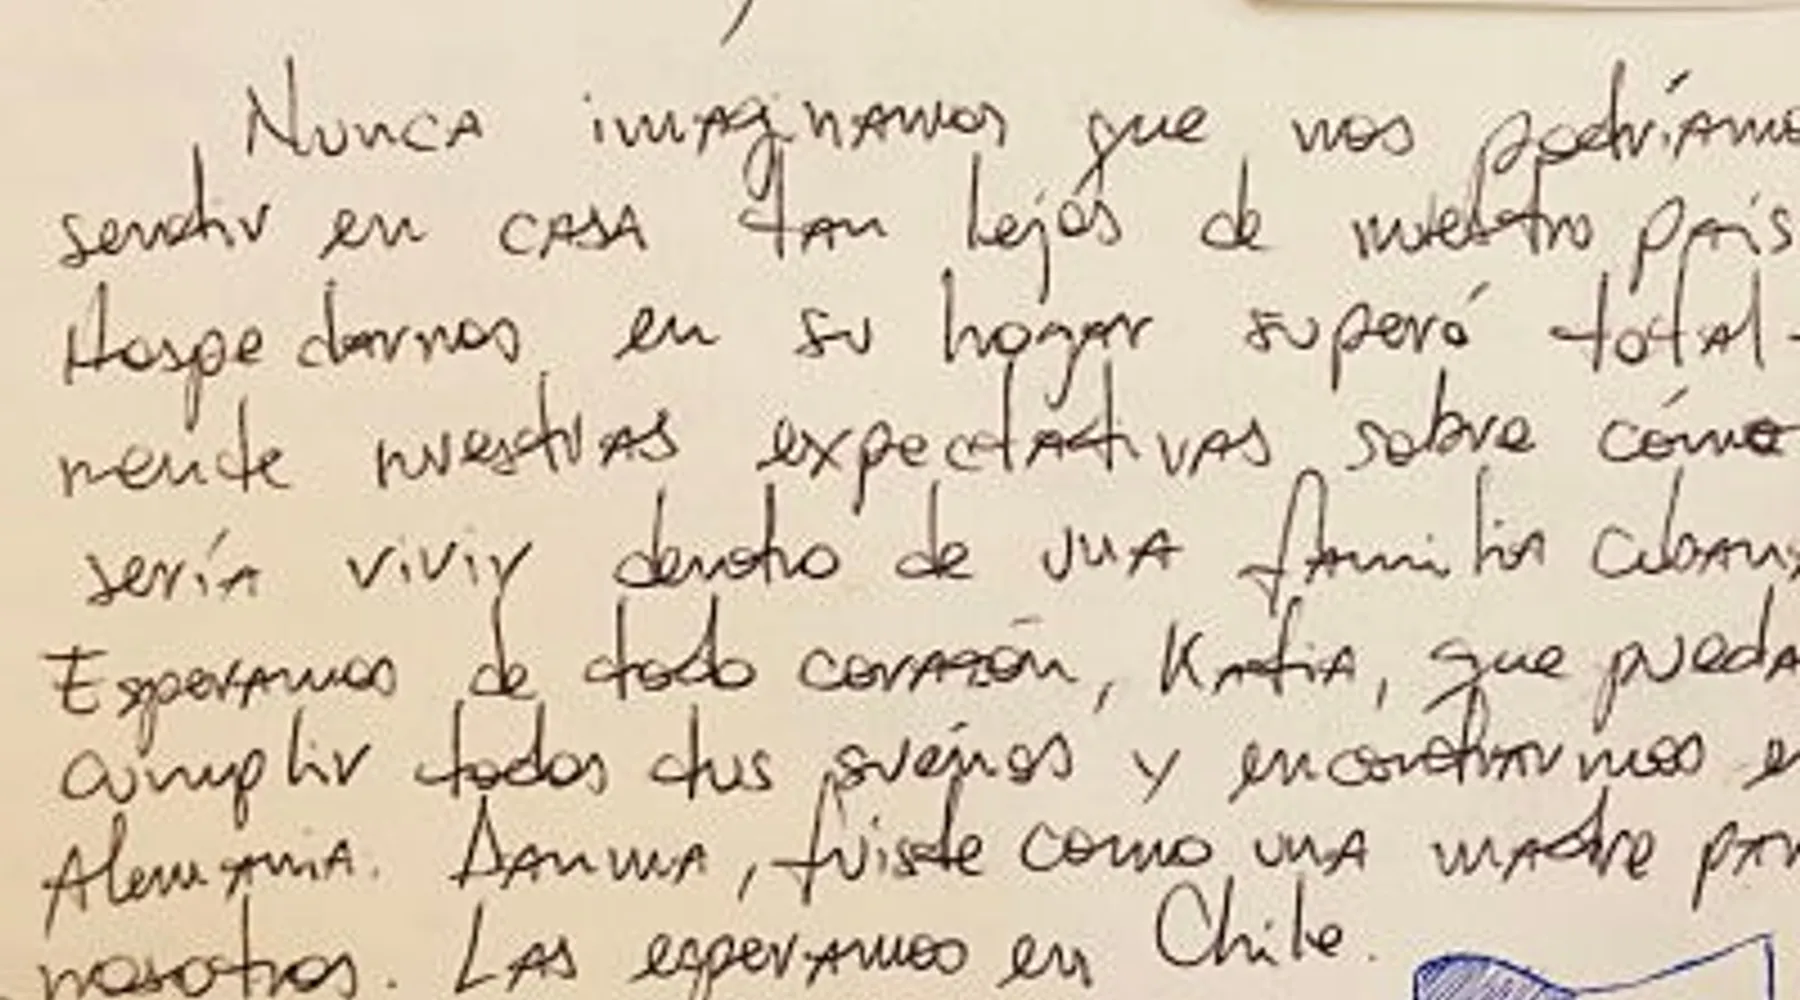 Nunca imaginamos que nos podríamo
sentir en casa tan lejos de nuestro país
Hospedarnos en su hogar superó total-
mente nuestras expectativas sobre cómo
sería vivir dentro de una familia cubana
Esperamos de todo corazón, Katia, que pueda
cumplir todos tus sueños y encontrarnos en
Alemania. Danma, fuiste como una madre par
nosotros. Las esperamos en Chile.